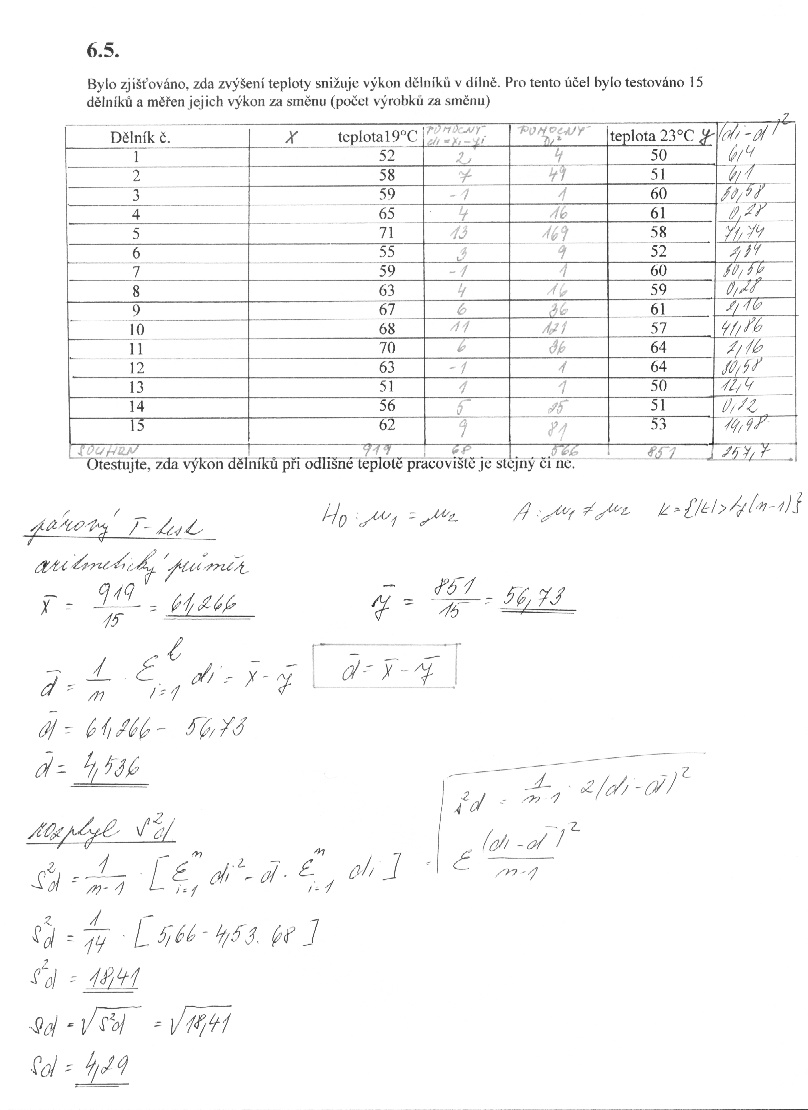 6.5.
Bylo zjišťováno, zda zvýšení teploty snižuje výkon dělníků v dílně. Pro tento účel bylo testováno 15
dělníků a měřen jejich výkon za směnu (počet výrobků za směnu)
Dělník č. X teplota19°C POMOCNÝ di=xi-yi POMOCNÝ Di² teplota 23°C y (di-d)²
1 52 2 4 50 6,4
2 58 7 49 51 6,1
3 59 -1 1 60 30,58
4 65 4 16 61 0,28
5 71 13 169 58 71,74
6 55 3 9 52 2,34
7 59 -1 1 60 30,56
8 63 4 16 59 0,28
9 67 6 36 61 2,16
10 68 11 121 57 41,86
11 70 6 36 64 2,16
12 63 -1 1 64 30,58
13 51 1 1 50 12,4
14 56 5 25 51 0,22
15 62 9 81 53 19,98
SOUHRN 919 68 566 851 257,7
Otestujte, zda výkon dělníků při odlišné teplotě pracoviště je stejný či ne.
párový T-test H₀: μ₁ = μ₂ A: μ₁ ≠ μ₂ K={|t|>t(n-1)}
aritmetický průměr
x̄ = 919/15 = 61,266 ȳ = 851/15 = 56,73
d̄ = 1/n · Σ di = x̄ - ȳ d̄ = x̄ - ȳ
d̄ = 61,266 - 56,73
d̄ = 4,536
s²d = 1/n-1 · 2(di-d̄)²
rozptyl s²d
Σ (di-d̄)²/n-1
s²d = 1/n-1 · [Σ di² - d̄ · Σ di] =
s²d = 1/14 · [5,66 - 4,53. 68]
s²d = 18,41
sd = √s²d = √18,41
sd = 4,29